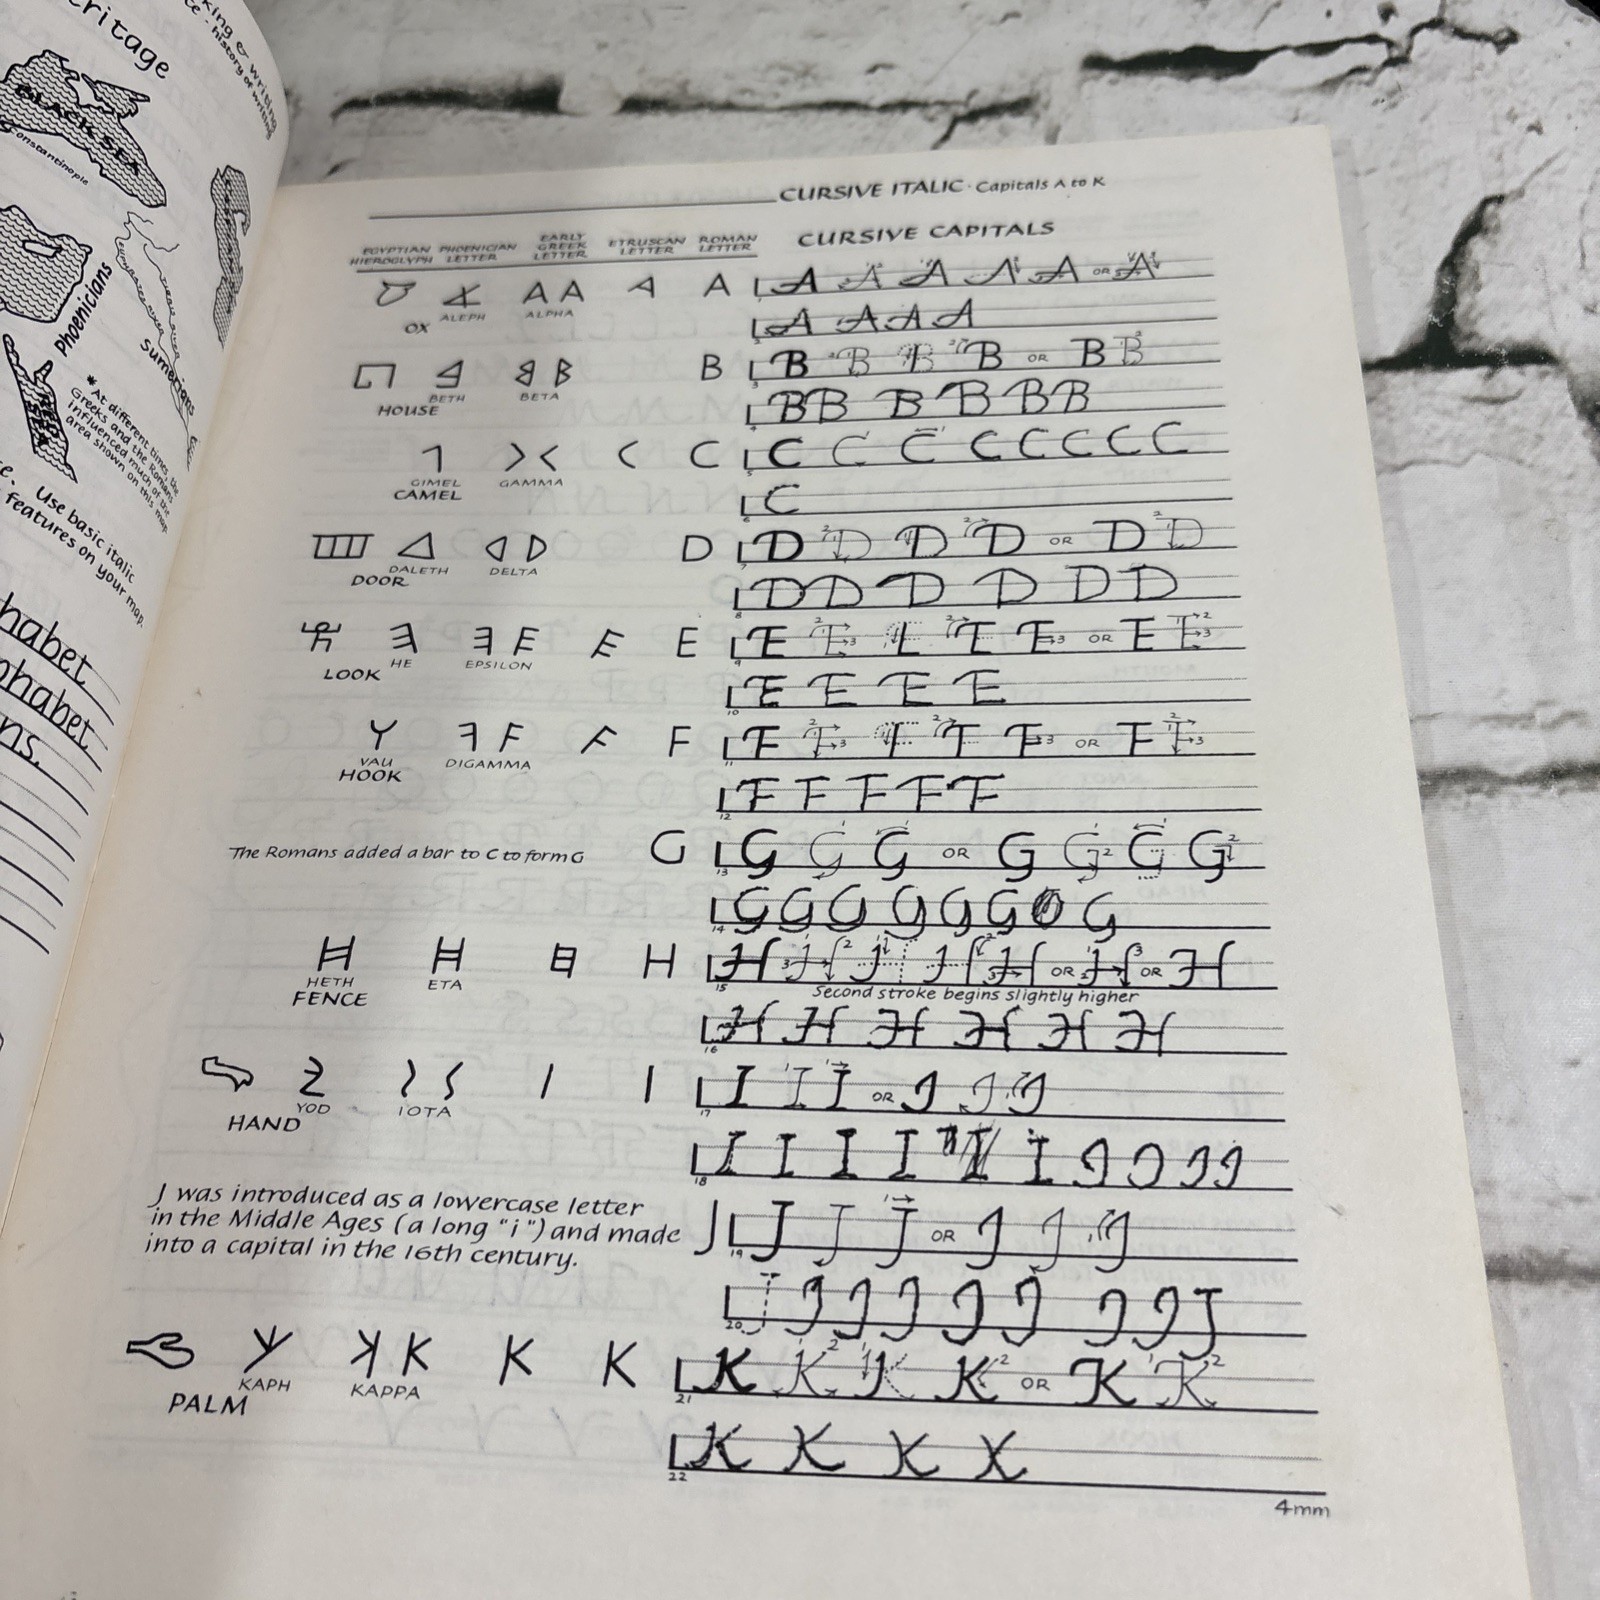 eritage
king & writing
te - history of writing
BLACK SEA
Constantinople
Phoenicians
Sumerians
RED SEA
*At different times, the
Greeks and the Romans
influenced much of the
area shown on this map.
Use basic italic
features on your map.
habet
phabet
ns.
CURSIVE ITALIC · Capitals A to K
EGYPTIAN HIEROGLYPH PHOENICIAN LETTER EARLY GREEK LETTER ETRUSCAN LETTER ROMAN LETTER CURSIVE CAPITALS
A A A A A A A A A OR A
OX ALEPH ALPHA
A A A A
B B B B B OR B B
HOUSE BETH BETA
B B B B B B
C C C C C C C C C
GIMEL GAMMA
CAMEL
C
D D D D D OR D D
DOOR DALETH DELTA
D D D D D D
E E E E L E E OR E E
LOOK HE EPSILON
E E E E
F F F F F F F OR F F
VAU DIGAMMA
HOOK
F F F F F
The Romans added a bar to C to form G G G G G OR G G G G
G G G G G G G
H H H H H H OR H OR H
HETH ETA
FENCE
Second stroke begins slightly higher
H H H H H H
I I I I I OR I I I
HAND YOD IOTA
I I I I I I I I I I
J was introduced as a lowercase letter
in the Middle Ages (a long "i") and made
into a capital in the 16th century.
J J J J OR J J J
J J J J J J J J J
K K K K K K K K OR K K
PALM KAPH KAPPA
K K K K
4mm